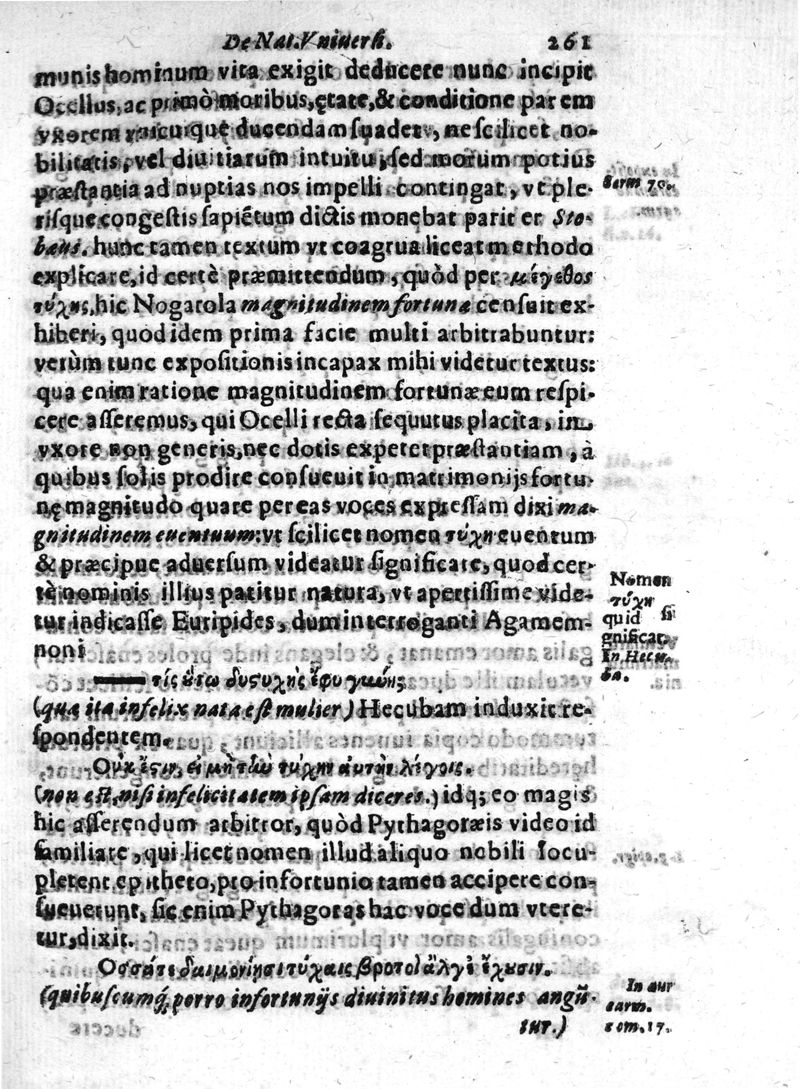 De Nat. Vniuersi. 261
munis hominum vita exigit deducere nunc incipit
Ocellus, ac primò moribus, ętate, & conditione parem
vxorem vnicuique ducendam suadet, ne scilicet no-
bilitatis, vel diuitiarum intuitu, sed morum potius
præstantia ad nuptias nos impelli contingat, vt ple-
Serm 70.
risque congestis sapiẽtum dictis monebat pariter Sto-
bæus. hunc tamen textum vt coagrua liceat methodo
explicare, id certè præmittendum, quòd per μέγεθος
τύχης, hic Nogarola magnitudinem fortunæ censuit ex-
hiberi, quod idem prima facie multi arbitrabuntur:
verùm tunc expositionis incapax mihi videtur textus:
qua enim ratione magnitudinem fortunæ eum respi-
cere asseremus, qui Ocelli recta sequutus placita, in
vxore non generis, nec dotis expetet præstantiam, à
quibus solis prodire consueuit in matrimonijs fortu-
nę magnitudo quare per eas voces expressam dixi ma-
gnitudinem euentuum: vt scilicet nomen τύχη euentum
& præcipue aduersum videatur significare, quod cer-
tè nominis illius patitur natura, vt apertissime vide-
tur indicasse Euripides, dum interroganti Agamem-
noni
Nomen
τύχη
quid si
gnificat.
In Hecu-
ba.
τις ȣ́τω δυςυχὴς ἔφυ γυνή;
(quæ ita infelix nata est mulier) Hecubam induxit re-
spondentem.
Οὐκ ἔςιν, εἰ μὴ τὼ τύχην αὐτὴν λέγοις.
(non est, nisi infelicitatem ipsam diceres.) idq; eo magis
hic asserendum arbitror, quòd Pythagoræis video id
familiare, qui licet nomen illud aliquo nobili locu-
pletent epitheto, pro infortunio tamen accipere con-
sueuerunt, sic enim Pythagoras hac voce dum vtere-
tur, dixit.
Οσσάτε δαιμονίησι τύχαις βροτοὶ ἄλγἐ ἔχȣσιν.
(quibuscumq; porro infortunijs diuinitus homines angũ-
tur.)
In aur
carm.
com. 17.